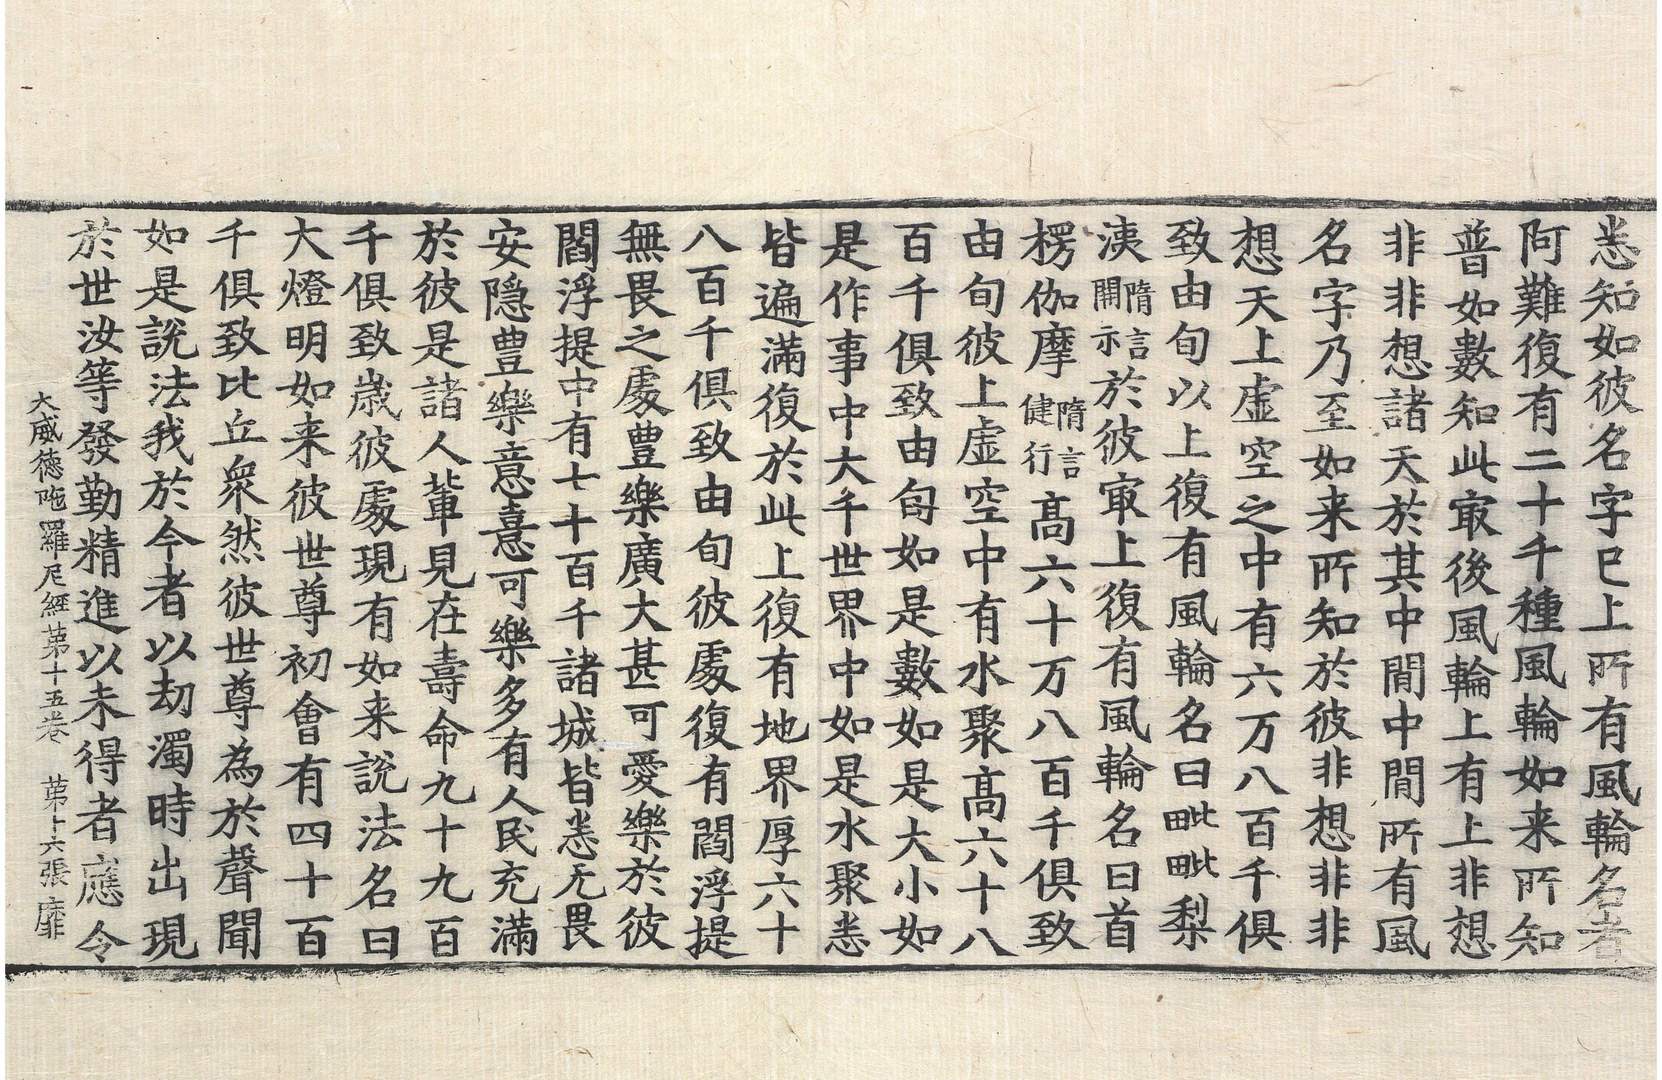 悉知如彼名字已上所有風輪名者
阿難復有二十千種風輪如来所知
普如數知此㝡後風輪上有上非想
非非想諸天於其中間中間所有風
名字乃至如来所知於彼非想非非
想天上虚空之中有六万八百千俱
致由旬以上復有風輪名曰毗毗梨
洟隋言開示於彼㝡上復有風輪名曰首
楞伽摩隋言健行髙六十万八百千俱致
由旬彼上虚空中有水聚髙六十八
百千俱致由旬如是數如是大小如
是作事中大千世界中如是水聚悉
皆遍滿復於此上復有地界厚六十
八百千俱致由旬彼處復有閻浮提
無畏之處豊樂廣大甚可愛樂於彼
閻浮提中有七十百千諸城皆悉无畏
安隐豊樂意憙可樂多有人民充滿
於彼是諸人軰見在壽命九十九百
千俱致歳彼處現有如来說法名曰
大燈明如来彼世尊初會有四十百
千俱致比丘衆然彼世尊為於聲聞
如是說法我於今者以劫濁時出現
於世汝等發勤精進以未得者應令
大威德陁羅尼經苐十五卷 苐十六張 靡